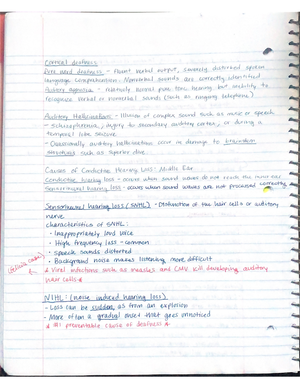 Cortical deafness
Pure word deafness - Fluent verbal output, severely distorted speech
language comprehension. Nonverbal sounds are correctly identified
Auditory Agnosia - relatively normal pure tone hearing but inability to
recognize verbal or nonverbal sounds (such as ringing telephone)
Auditory Hallucinations - Illusion of complex sound such as music or speech
- Schizophrenia, injury to secondary auditory cortex, or during a
temporal lobe seizure
- Occasionally auditory hallucinations occur in damage to brainstem
structures such as superior olive
Causes of Conductive Hearing Loss: Middle Ear
Conductive hearing loss - occurs when sound waves do not reach the inner ear
Sensorineural hearing loss - occurs when sound waves are not processed correctly
Sensorineural hearing loss (SNHL) - Disfunction of the hair cells or auditory
nerve
Characteristics of SNHL:
- Inappropriately loud voice
- High frequency loss - common
- Speech sounds distorted
- Background noise makes listening more difficult
* Viral infections such as measles and CMV kill developing auditory
hair cells *
NIHL: (noise induced hearing loss)
- Loss can be sudden as from an explosion
- More often a gradual onset that goes unnoticed
* #1 preventable cause of deafness *